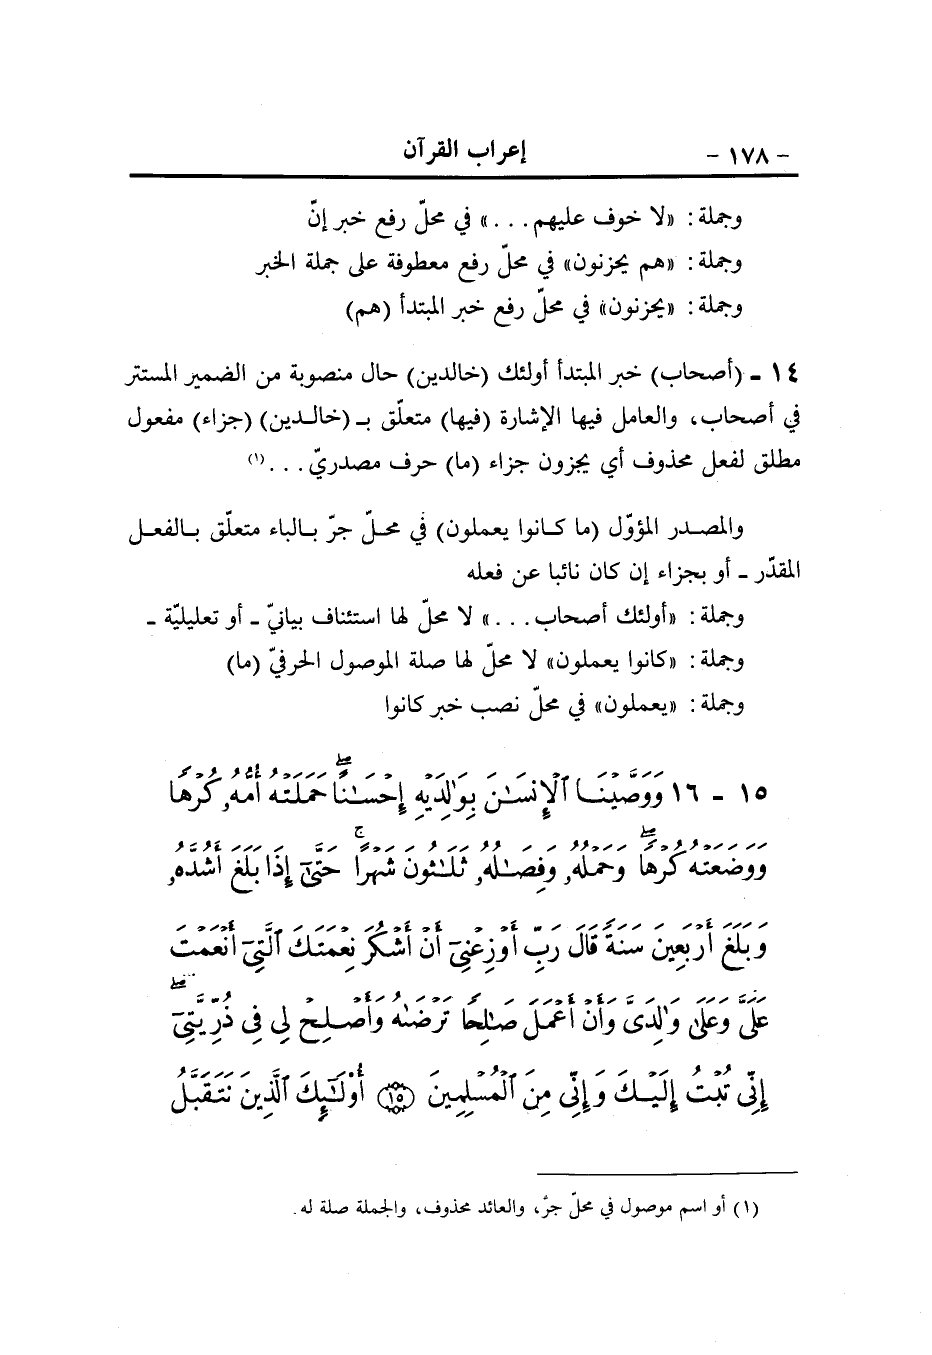 - ١٧٨ - إعراب القرآن
وجملة: «لا خوف عليهم...» في محلّ رفع خبر إنّ
وجملة: «هم يحزنون» في محلّ رفع معطوفة على جملة الخبر
وجملة: «يحزنون» في محلّ رفع خبر المبتدأ (هم)
١٤ ـ (أصحاب) خبر المبتدأ أولئك (خالدين) حال منصوبة من الضمير المستتر
في أصحاب، والعامل فيها الإشارة (فيها) متعلّق بـ (خالدين) (جزاء) مفعول
مطلق لفعل محذوف أي يجزون جزاء (ما) حرف مصدريّ...(١)
والمصدر المؤوّل (ما كانوا يعملون) في محلّ جرّ بالباء متعلّق بالفعل
المقدّر ـ أو بجزاء إن كان نائبا عن فعله
وجملة: «أولئك أصحاب...» لا محلّ لها استئناف بيانيّ ـ أو تعليليّة ـ
وجملة: «كانوا يعملون» لا محلّ لها صلة الموصول الحرفيّ (ما)
وجملة: «يعملون» في محلّ نصب خبر كانوا
١٥ - ١٦ وَوَصَّيْنَا ٱلْإِنسَـٰنَ بِوَٰلِدَيْهِ إِحْسَـٰنًا ۖ حَمَلَتْهُ أُمُّهُۥ كُرْهًا
وَوَضَعَتْهُ كُرْهًا ۖ وَحَمْلُهُۥ وَفِصَـٰلُهُۥ ثَلَـٰثُونَ شَهْرًا ۚ حَتَّىٰٓ إِذَا بَلَغَ أَشُدَّهُۥ
وَبَلَغَ أَرْبَعِينَ سَنَةً قَالَ رَبِّ أَوْزِعْنِىٓ أَنْ أَشْكُرَ نِعْمَتَكَ ٱلَّتِىٓ أَنْعَمْتَ
عَلَىَّ وَعَلَىٰ وَٰلِدَىَّ وَأَنْ أَعْمَلَ صَـٰلِحًا تَرْضَىٰهُ وَأَصْلِحْ لِى فِى ذُرِّيَّتِىٓ ۖ
إِنِّى تُبْتُ إِلَيْكَ وَإِنِّى مِنَ ٱلْمُسْلِمِينَ ﴿١٥﴾ أُو۟لَـٰٓئِكَ ٱلَّذِينَ نَتَقَبَّلُ
(١) أو اسم موصول في محلّ جرّ، والعائد محذوف، والجملة صلة له.